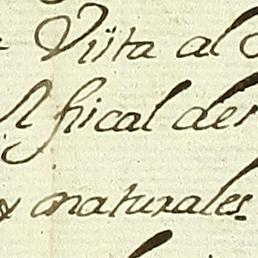 Vista al
fiscal del
y naturales.